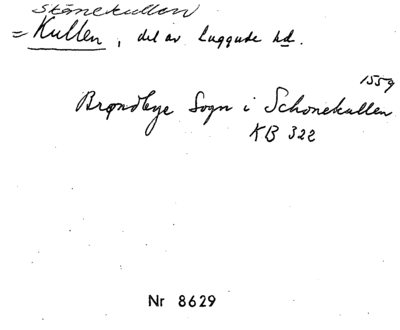 Skånekullen
= Kullen, del av Luggude hd.
1559
Brøndbye Sogn i Schonekullen
KB 322
Nr 8629